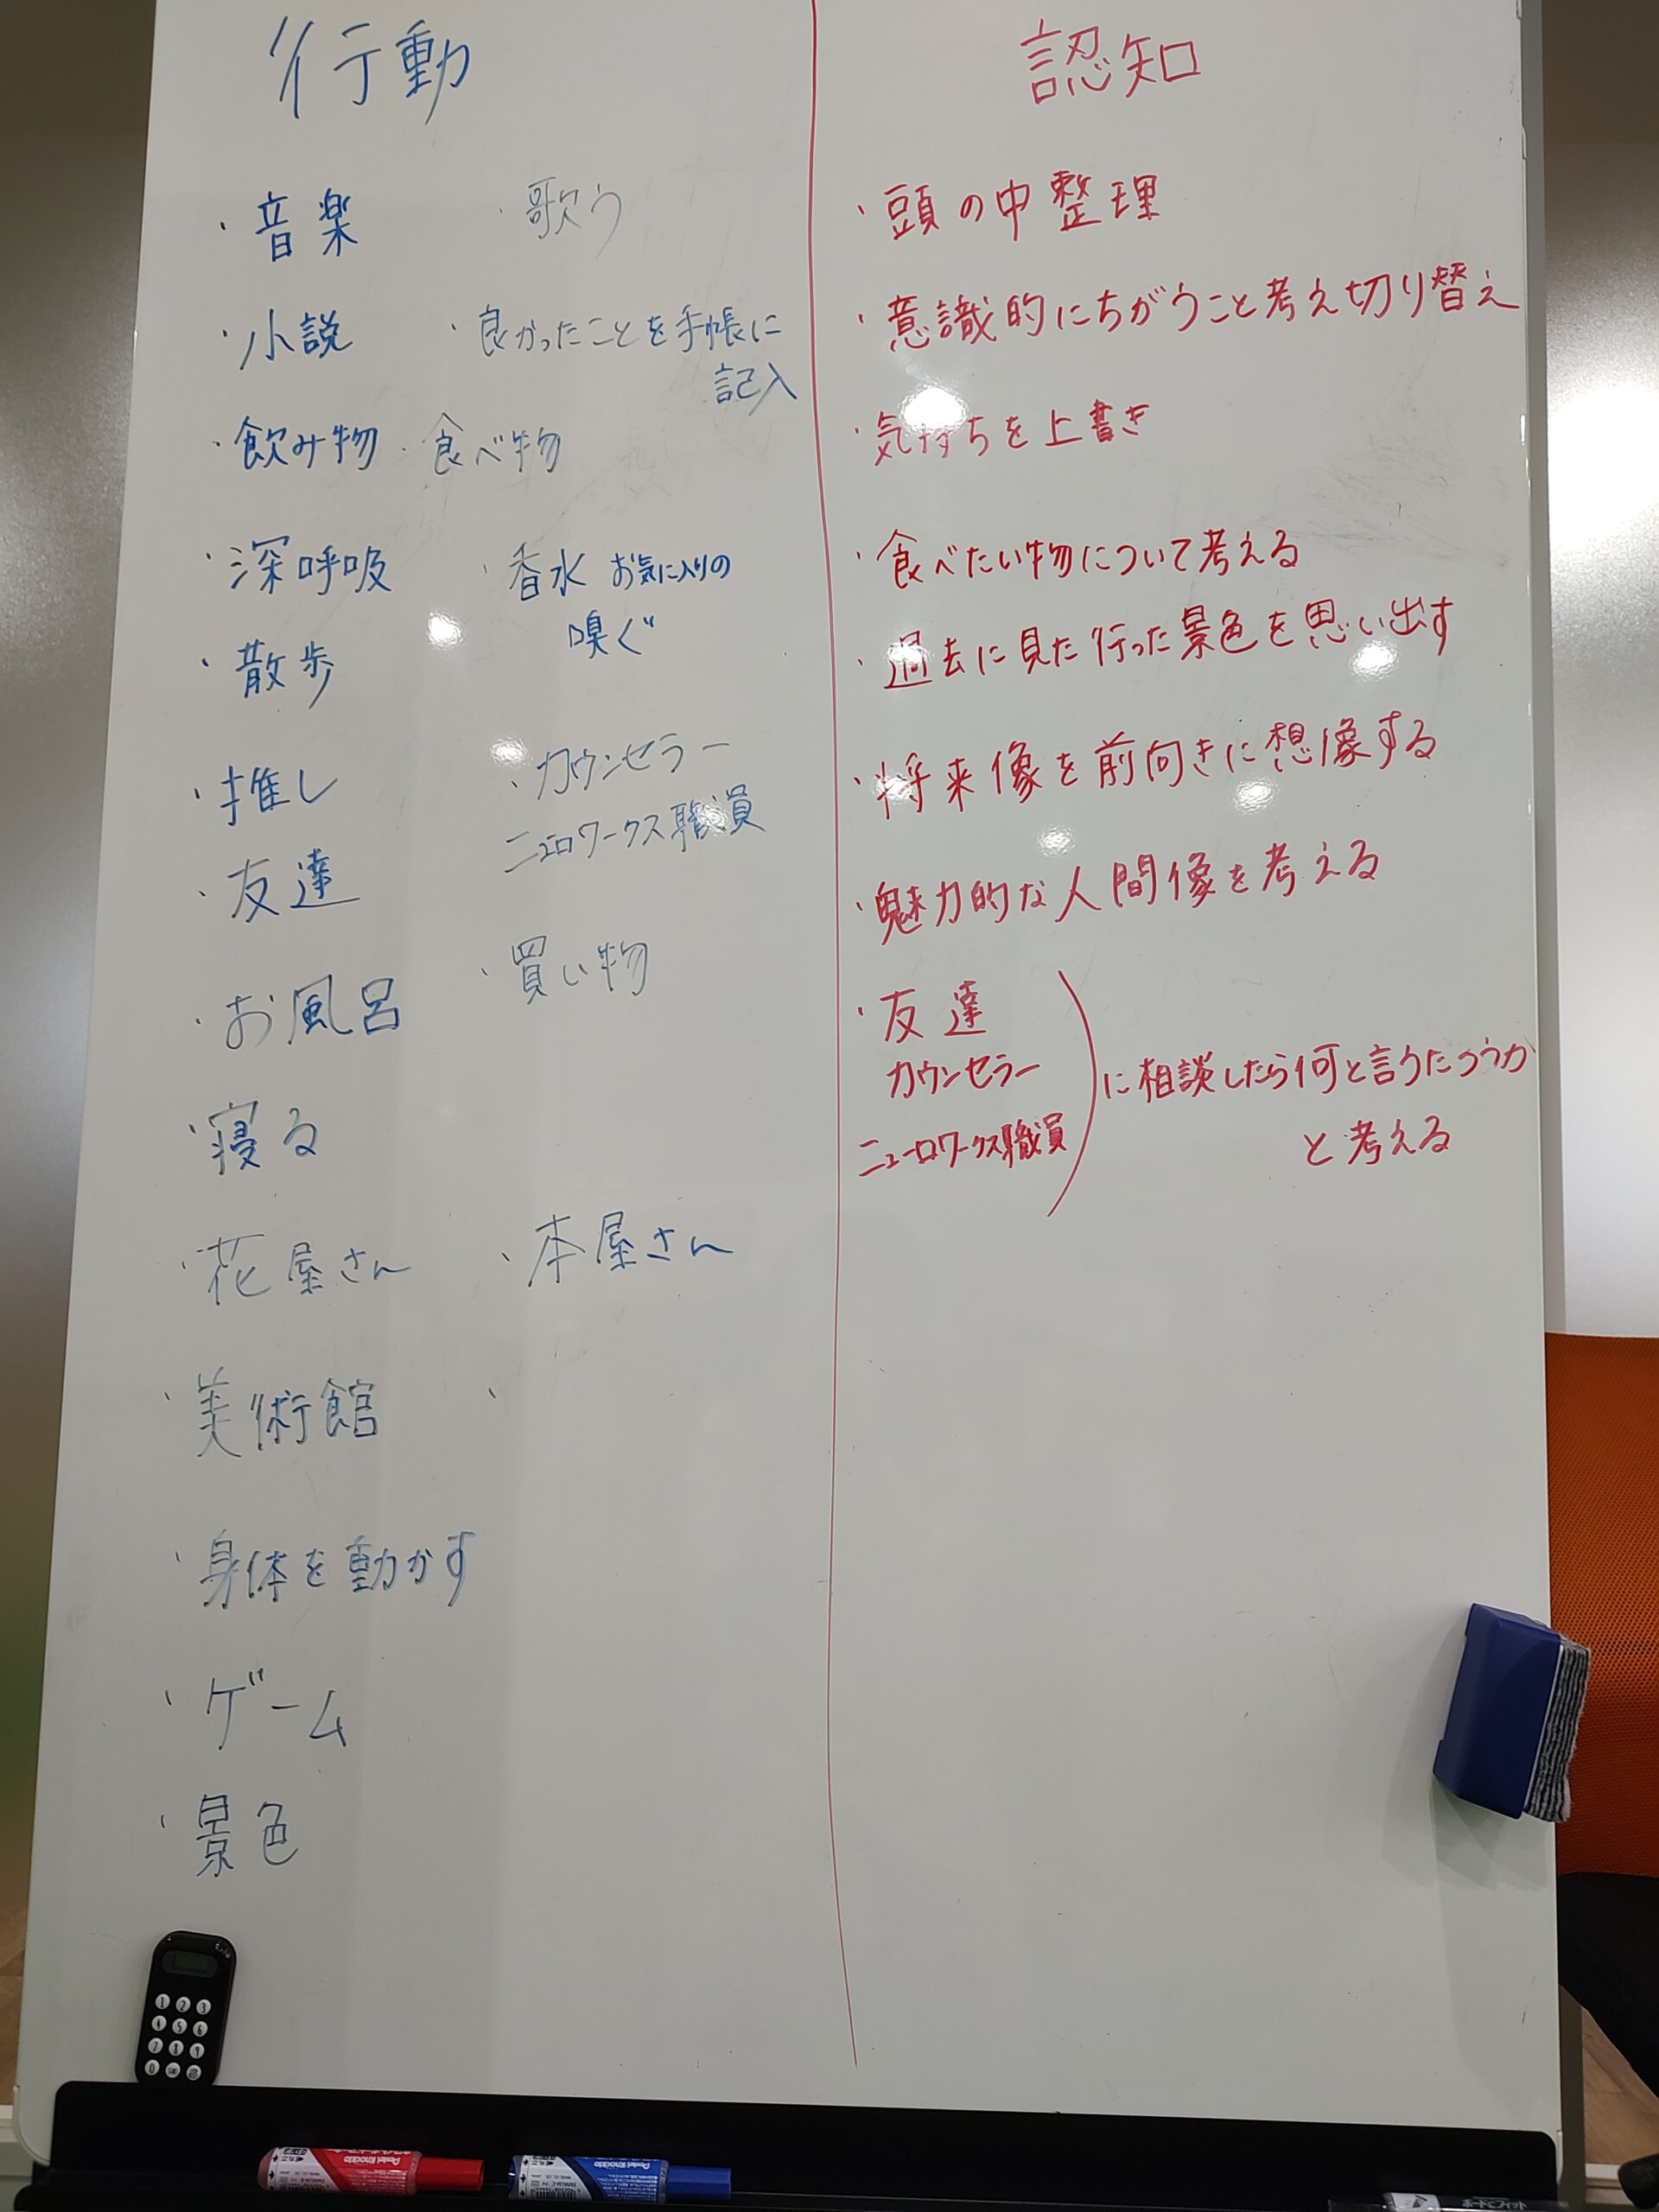 行動
・音楽
・歌う
・小説
・良かったことを手帳に
記入
・飲み物
・食べ物
・深呼吸
・香水 お気に入りの
嗅ぐ
・散歩
・推し
・カウンセラー
ニューロワークス職員
・友達
・買い物
・お風呂
・寝る
・花屋さん
・本屋さん
・美術館
・
・身体を動かす
・ゲーム
・景色
認知
・頭の中整理
・意識的にちがうこと考え切り替え
・気持ちを上書き
・食べたい物について考える
・過去に見た行った景色を思い出す
・将来像を前向きに想像する
・魅力的な人間像を考える
・友達
カウンセラー
ニューロワークス職員
に相談したら何と言うだろうか
と考える
1 2 3
4 5 6
7 8 9
0
Pentel Knockle
Pentel Knockle